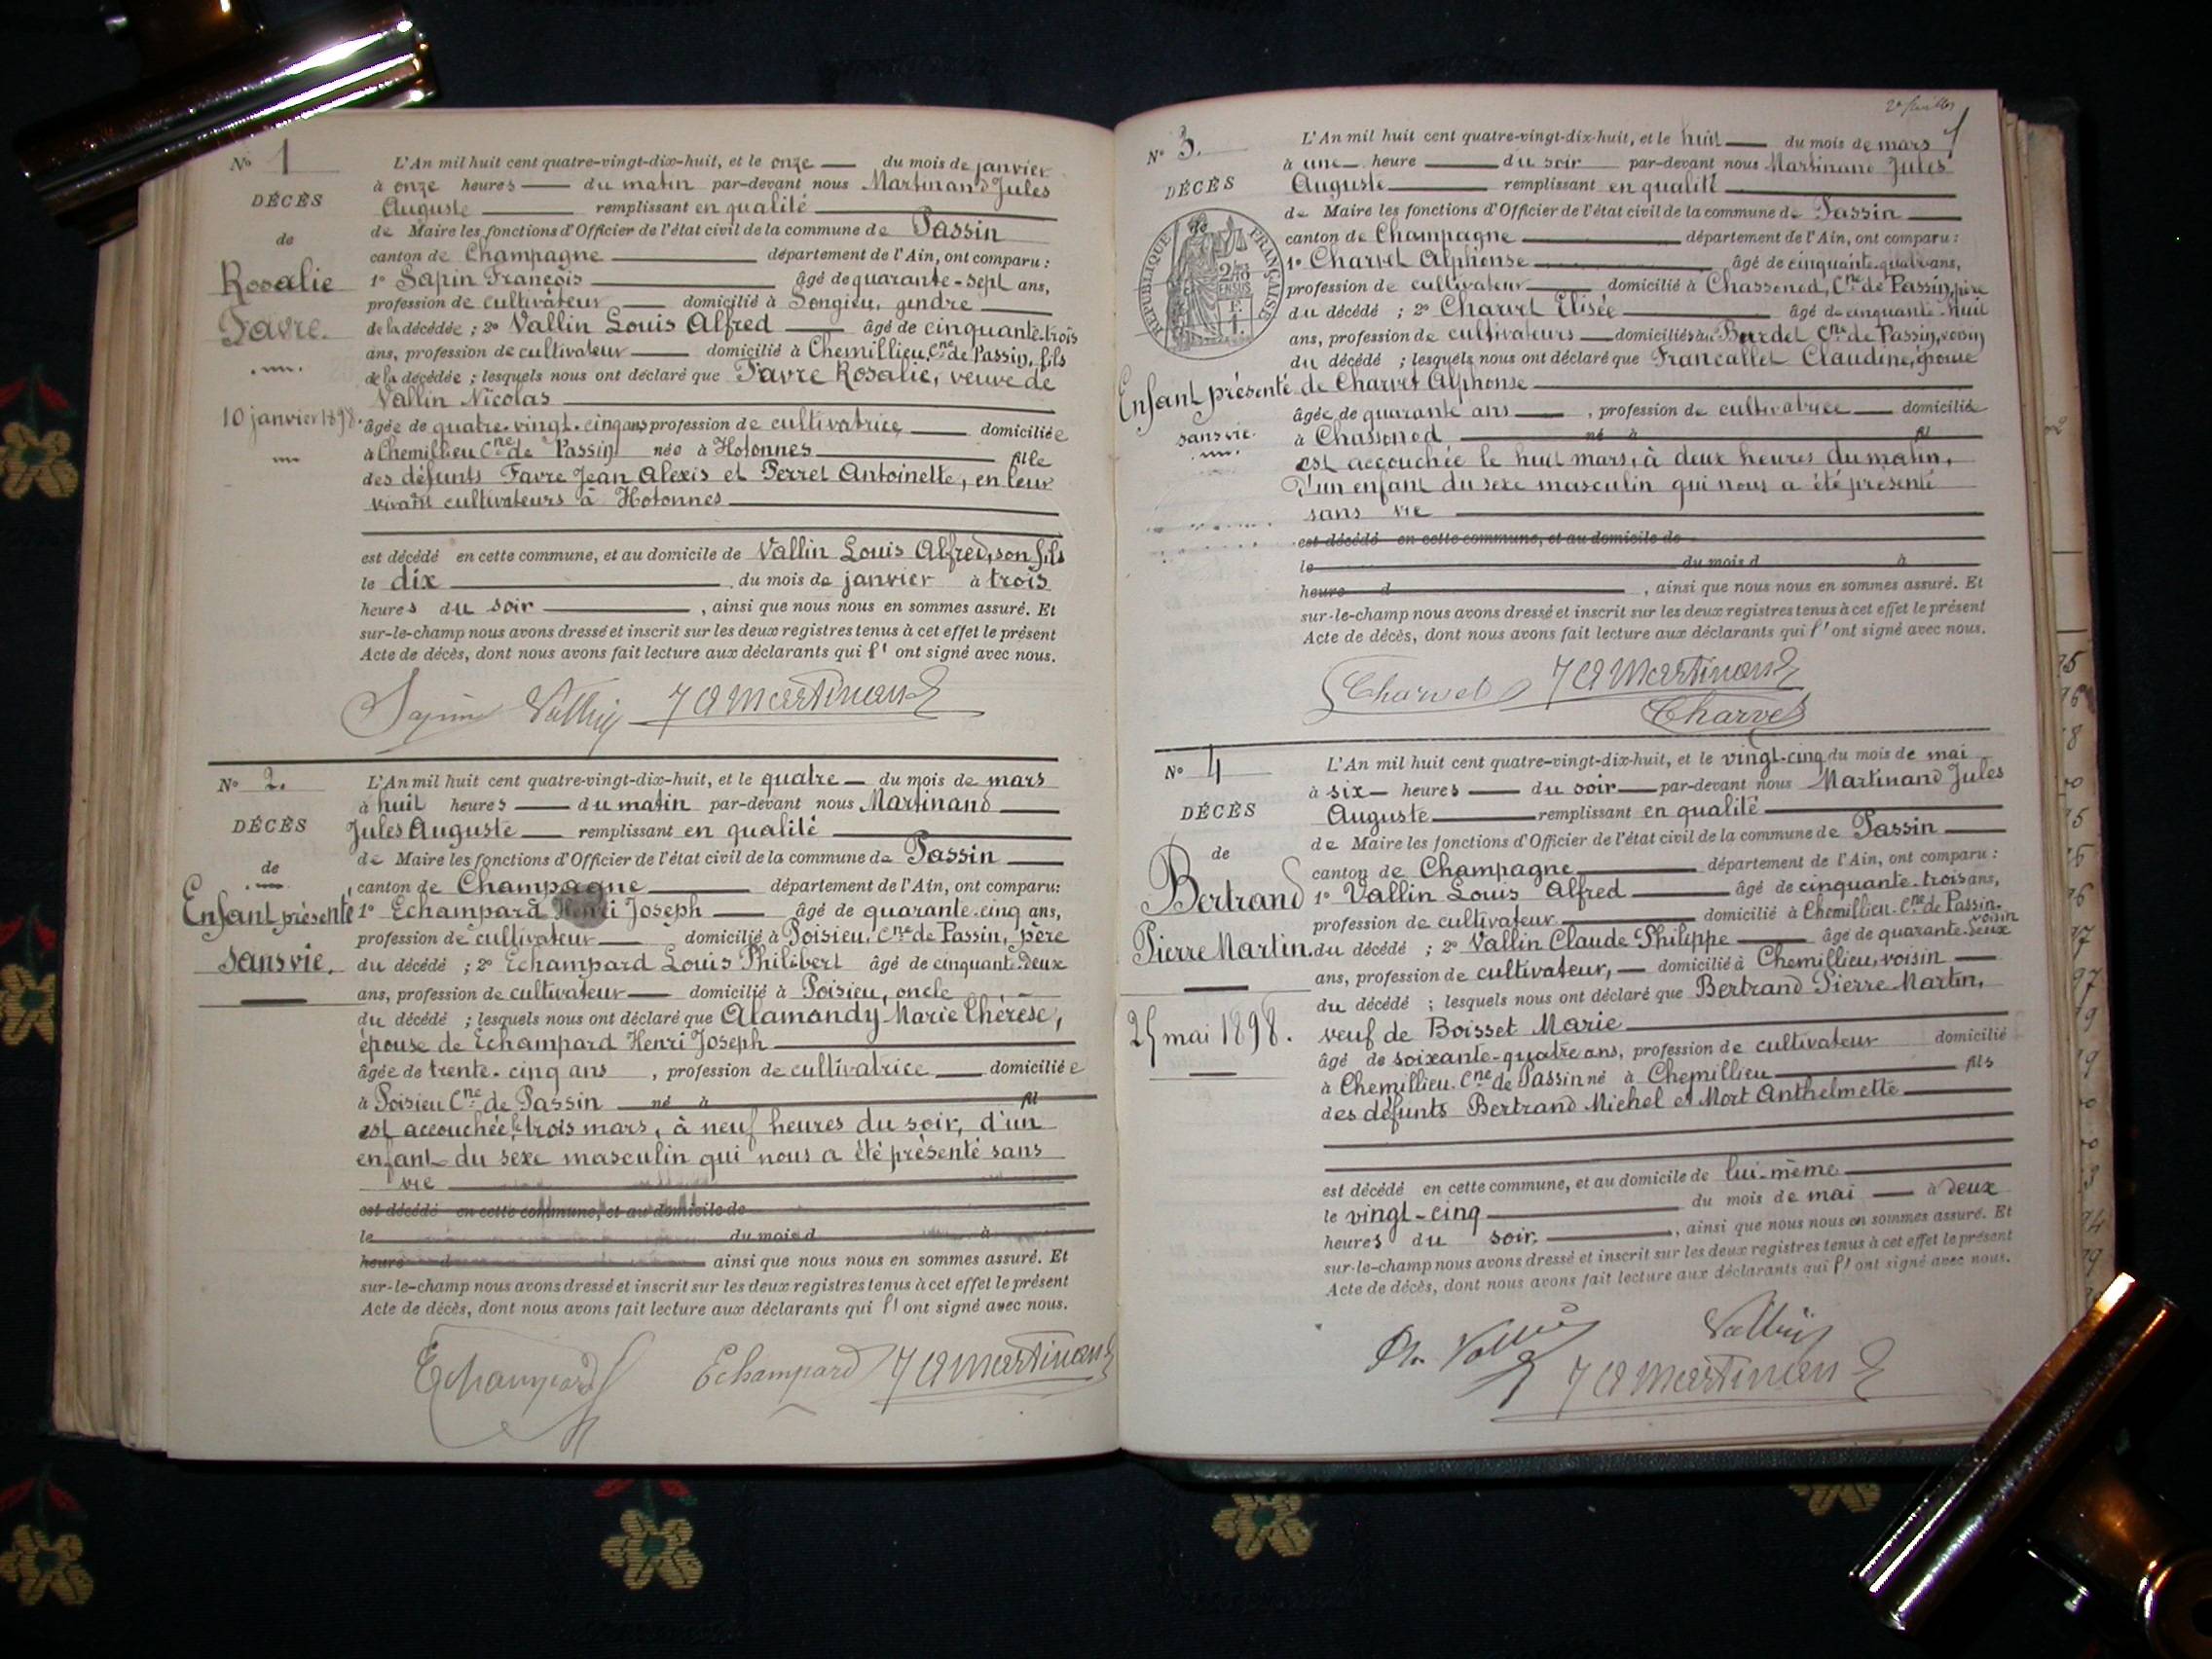 No 1
DÉCÈS
de
Rosalie
Favre.
10 janvier 1898.
L'An mil huit cent quatre-vingt-dix-huit, et le onze du mois de janvier
à onze heures du matin par-devant nous Martinand Jules
Auguste remplissant en qualité
de Maire les fonctions d'Officier de l'état civil de la commune de Passin
canton de Champagne département de l'Ain, ont comparu :
1o Sapin François âgé de quarante-sept ans,
profession de cultivateur domicilié à Songieu, gendre
de la décédée ; 2o Vallin Louis Alfred âgé de cinquante-trois
ans, profession de cultivateur domicilié à Chemillieu, Cne de Passin, fils
de la décédée ; lesquels nous ont déclaré que Favre Rosalie, veuve de
Vallin Nicolas
âgée de quatre-vingt-cinq ans profession de cultivatrice domiciliée
à Chemillieu Cne de Passin née à Hotonnes fille
des défunts Favre Jean Alexis et Perret Antoinette, en leur
vivant cultivateurs à Hotonnes
est décédé en cette commune, et au domicile de Vallin Louis Alfred, son fils
le dix du mois de janvier à trois
heures du soir , ainsi que nous nous en sommes assuré. Et
sur-le-champ nous avons dressé et inscrit sur les deux registres tenus à cet effet le présent
Acte de décès, dont nous avons fait lecture aux déclarants qui l'ont signé avec nous.
Sapin Vallin JA Martinand
No 2.
DÉCÈS
de
Enfant présenté
sans vie.
L'An mil huit cent quatre-vingt-dix-huit, et le quatre du mois de mars
à huit heures du matin par-devant nous Martinand
Jules Auguste remplissant en qualité
de Maire les fonctions d'Officier de l'état civil de la commune de Passin
canton de Champagne département de l'Ain, ont comparu:
1o Echampard Henri Joseph âgé de quarante-cinq ans,
profession de cultivateur domicilié à Poisieu, Cne de Passin, père
du décédé ; 2o Echampard Louis Philibert âgé de cinquante-deux
ans, profession de cultivateur domicilié à Poisieu, oncle
du décédé ; lesquels nous ont déclaré que Alamandy Marie Thérèse,
épouse de Echampard Henri Joseph
âgée de trente-cinq ans , profession de cultivatrice domiciliée
à Poisieu Cne de Passin né à fil
est accouchée, le trois mars, à neuf heures du soir, d'un
enfant du sexe masculin qui nous a été présenté sans
vie
est décédé en cette commune, et au domicile de
le du mois d à
heure d ainsi que nous nous en sommes assuré. Et
sur-le-champ nous avons dressé et inscrit sur les deux registres tenus à cet effet le présent
Acte de décès, dont nous avons fait lecture aux déclarants qui l'ont signé avec nous.
Echampard Echampard JA Martinand
No 3.
DÉCÈS
de
RÉPUBLIQUE FRANÇAISE
Enfant présenté
sans vie.
L'An mil huit cent quatre-vingt-dix-huit, et le huit du mois de mars
à une heure du soir par-devant nous Martinand Jules
Auguste remplissant en qualité
de Maire les fonctions d'Officier de l'état civil de la commune de Passin
canton de Champagne département de l'Ain, ont comparu :
1o Charvet Alphonse âgé de cinquante-quatre ans,
profession de cultivateur domicilié à Chassonod, Cne de Passin, père
du décédé ; 2o Charvet Elisée âgé de cinquante-huit
ans, profession de cultivateurs domiciliés au Burdet Cne de Passin, voisin
du décédé ; lesquels nous ont déclaré que Francallet Claudine, épouse
de Charvet Alphonse
âgée de quarante ans , profession de cultivatrice domiciliée
à Chassonod né à fil
est accouchée le huit mars, à deux heures du matin,
d'un enfant du sexe masculin qui nous a été présenté
sans vie
est décédé en cette commune, et au domicile de
le du mois d à
heure d , ainsi que nous nous en sommes assuré. Et
sur-le-champ nous avons dressé et inscrit sur les deux registres tenus à cet effet le présent
Acte de décès, dont nous avons fait lecture aux déclarants qui l'ont signé avec nous.
Charvet JA Martinand
Charvet
No 4
DÉCÈS
de
Bertrand
Pierre Martin.
25 mai 1898.
L'An mil huit cent quatre-vingt-dix-huit, et le vingt-cinq du mois de mai
à six heures du soir par-devant nous Martinand Jules
Auguste remplissant en qualité
de Maire les fonctions d'Officier de l'état civil de la commune de Passin
canton de Champagne département de l'Ain, ont comparu :
1o Vallin Louis Alfred âgé de cinquante-trois ans,
profession de cultivateur domicilié à Chemillieu Cne de Passin. voisin
du décédé ; 2o Vallin Claude Philippe âgé de quarante-deux
ans, profession de cultivateur, domicilié à Chemillieu, voisin
du décédé ; lesquels nous ont déclaré que Bertrand Pierre Martin,
veuf de Boisset Marie
âgé de soixante-quatre ans, profession de cultivateur domicilié
à Chemillieu Cne de Passin né à Chemillieu fils
des défunts Bertrand Michel et Mort Anthelmette
est décédé en cette commune, et au domicile de lui-même
le vingt-cinq du mois de mai à deux
heures du soir. , ainsi que nous nous en sommes assuré. Et
sur-le-champ nous avons dressé et inscrit sur les deux registres tenus à cet effet le présent
Acte de décès, dont nous avons fait lecture aux déclarants qui l'ont signé avec nous.
Ph. Vallin Vallin
JA Martinand